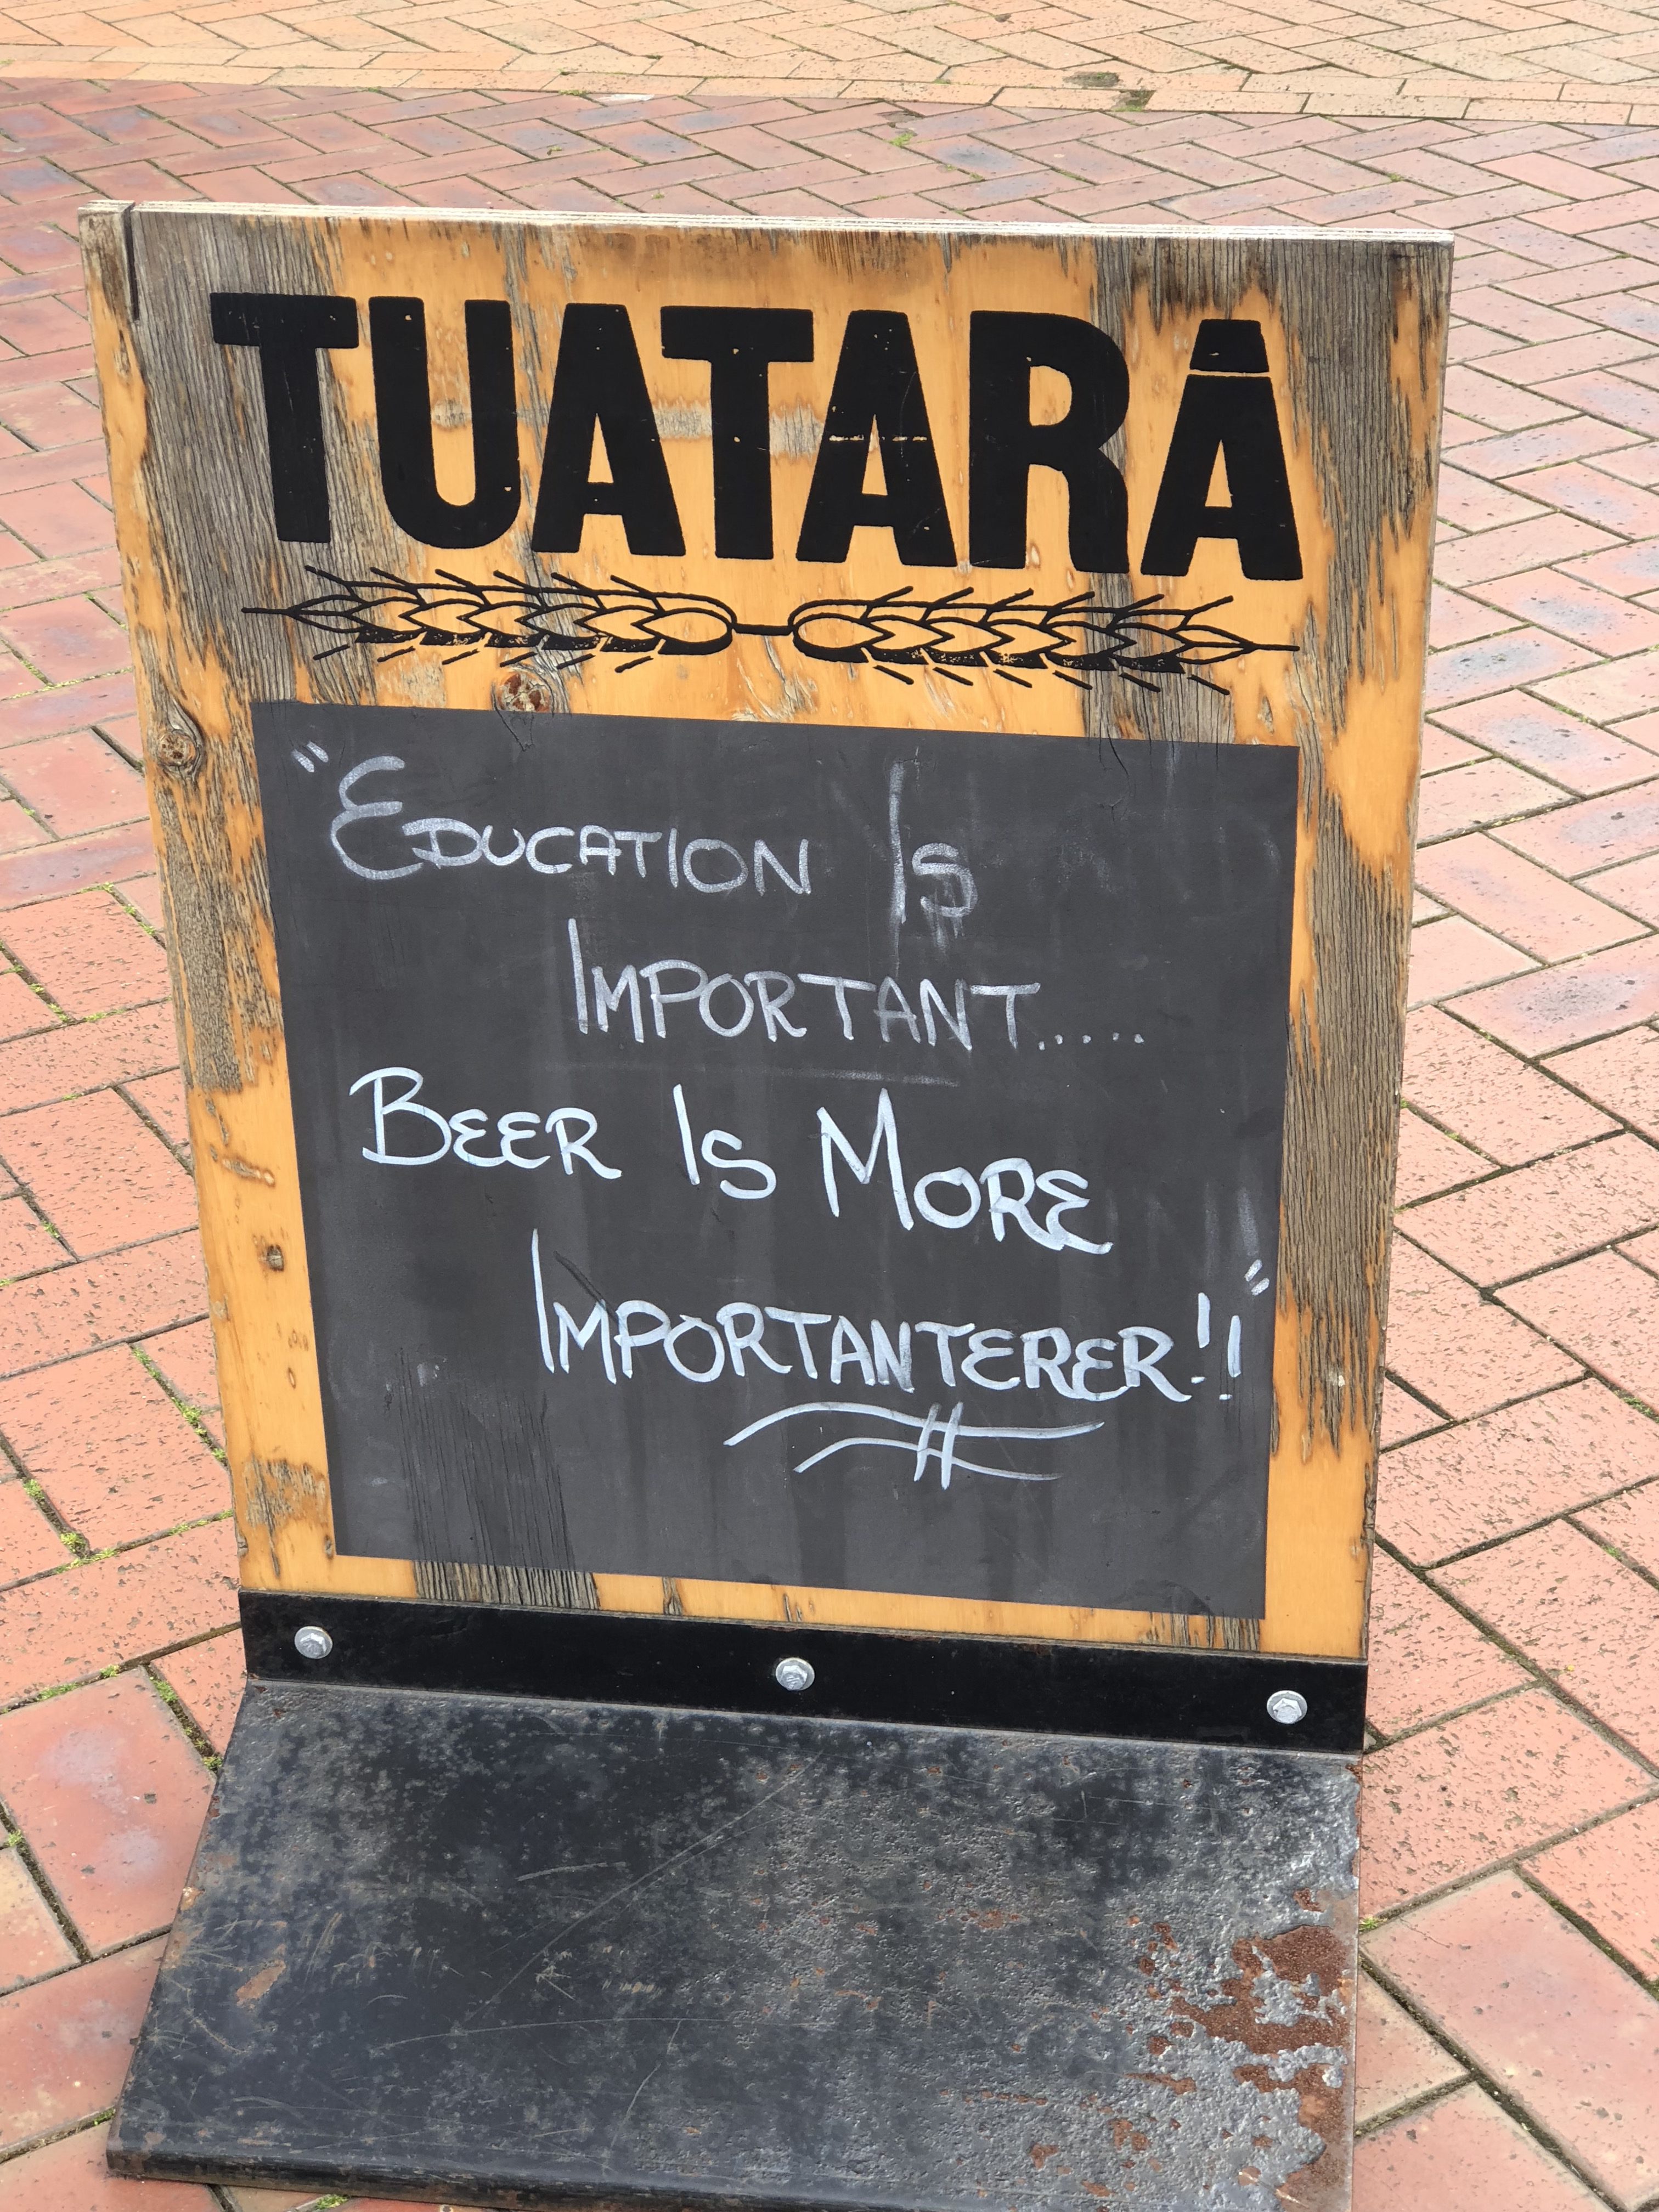 TUATARĀ
"EDUCATION IS
IMPORTANT.....
BEER IS MORE
IMPORTANTERER!!"